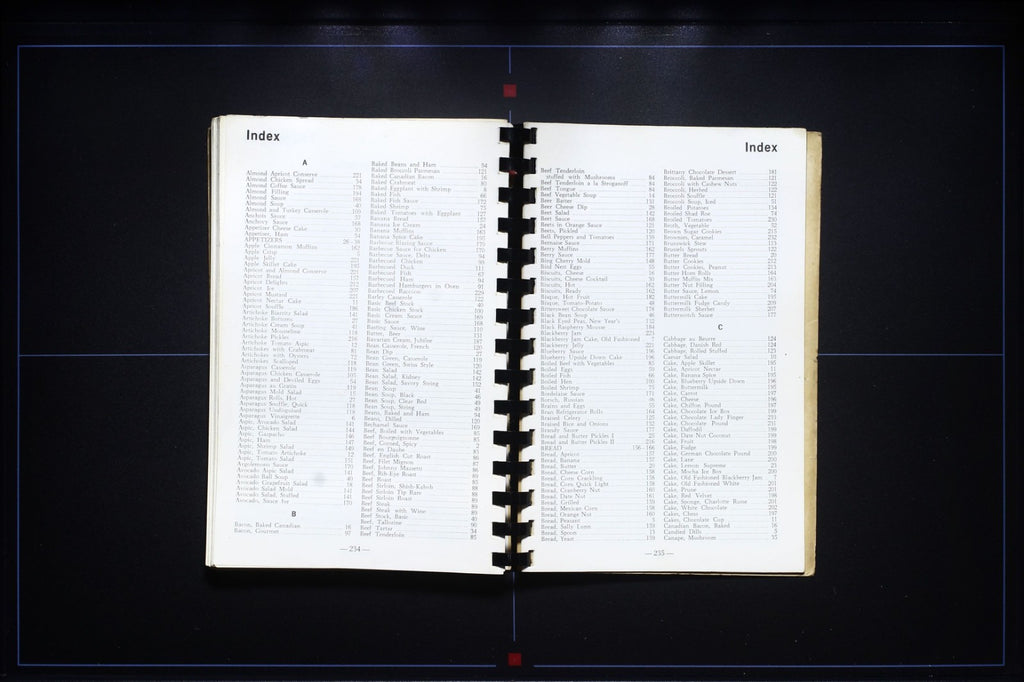 Index
A
Almond Apricot Conserve 221
Almond Chicken Spread 54
Almond Coffee Sauce 178
Almond Filling 194
Almond Sauce 168
Almond Soup 40
Almond and Turkey Casserole 109
Anchois Sauce 57
Anchovy Sauce 168
Appetizer Cheese Cake 30
Appetizer, Ham 54
APPETIZERS 26 - 38
Apple Cinnamon Muffins 162
Apple Crisp
Apple Jelly 221
Apple Skillet Cake 195
Apricot and Almond Conserve 221
Apricot Bread 157
Apricot Delights 212
Apricot Ice 207
Apricot Mustard 221
Apricot Nectar Cake 11
Apricot Souffle 186
Artichoke Biarritz Salad 141
Artichoke Bottoms 27
Artichoke Cream Soup 41
Artichoke Mousseline 118
Artichoke Pickles 216
Artichoke Tomato Aspic 12
Artichokes with Crabmeat 81
Artichokes with Oysters 72
Artichokes Scalloped 118
Asparagus Casserole 119
Asparagus Chicken Casserole 105
Asparagus and Deviled Eggs 54
Asparagus au Gratin 119
Asparagus Mold Salad 15
Asparagus Rolls, Hot 27
Asparagus Souffle, Quick 118
Asparagus Undisguised 119
Asparagus Vinaigrette 6
Aspic, Avocado Salad 141
Aspic, Chicken Salad 144
Aspic, Gazpacho 146
Aspic, Ham 147
Aspic, Shrimp Salad 149
Aspic, Tomato Artichoke 12
Aspic, Tomato Salad 151
Argolemono Sauce 170
Avocado Aspic Salad 141
Avocado Ball Soup 40
Avocado Grapefruit Salad 18
Avocado Salad Mold 141
Avocado Salad, Stuffed 141
Avocados, Sauce for 170
B
Bacon, Baked Canadian 16
Bacon, Gourmet 97
Baked Beans and Ham 54
Baked Broccoli Parmesan 121
Baked Canadian Bacon 16
Baked Crabmeat 80
Baked Eggplant with Shrimp 8
Baked Fish 66
Baked Fish Sauce 172
Baked Shrimp 75
Baked Tomatoes with Eggplant 127
Banana Bread 157
Banana Ice Cream 24
Banana Muffins 163
Banana Spice Cake 195
Barbecue Basting Sauce 170
Barbecue Sauce for Chicken 170
Barbecue Sauce, Delta 94
Barbecued Chicken 98
Barbecued Duck 111
Barbecued Fish 67
Barbecued Ham 94
Barbecued Hamburgers in Oven 91
Barbecued Raccoon 229
Barley Casserole 122
Basic Beef Stock 40
Basic Chicken Stock 100
Basic Cream Sauce 169
Basic Sauce 168
Basting Sauce, Wine 110
Batter, Beer 131
Bavarian Cream, Jubilee 187
Bean Casserole, French 120
Bean Dip 27
Bean Green, Casserole 119
Bean Green, Swiss Style 120
Bean Salad 142
Bean Salad, Kidney 142
Bean Salad, Savory String 152
Bean Soup 41
Bean Soup, Black 46
Bean Soup, Clear Red 49
Bean Soup, String 49
Beans, Baked and Ham 94
Beans, Dilled 120
Bechamel Sauce 169
Beef, Boiled with Vegetables 85
Beef Bourguignonne 85
Beef, Corned, Spicy 2
Beef en Daube 83
Beef, English Cut Roast 86
Beef, Filet Mignon 87
Beef, Johnny Mazzetti 86
Beef, Rib-Eye Roast 87
Beef Roast 85
Beef Sirloin, Shish-Kabob 88
Beef Sirloin Tip Rare 88
Beef Sirloin Roast 88
Beef Steak 89
Beef Steak with Wine 89
Beef Stock, Basic 40
Beef, Tallozine 90
Beef Tartar 54
Beef Tenderloin 85
— 234 —
Index
Beef Tenderloin
stuffed with Mushrooms 84
Beef Tenderloin a la Stroganoff 84
Beef Tongue 84
Beef Vegetable Soup 51
Beer Batter 131
Beer Cheese Dip 28
Beet Salad 142
Beet Sauce 168
Beets in Orange Sauce 121
Beets, Pickled 120
Bell Peppers and Tomatoes 159
Bernaise Sauce 171
Berry Muffins 162
Berry Sauce 177
Bing Cherry Mold 148
Bird Nest Eggs 55
Biscuits, Cheese 16
Biscuits, Cheese Cocktail 30
Biscuits, Hot 162
Biscuits, Ready 162
Bisque, Hot Fruit 182
Bisque, Tomato-Potato 48
Bittersweet Chocolate Sauce 178
Black Bean Soup 46
Black Eyed Peas, New Year's 132
Black Raspberry Mousse 184
Blackberry Jam 223
Blackberry Jam Cake, Old Fashioned 7
Blackberry Jelly 221
Blueberry Sauce 196
Blueberry Upside Down Cake 196
Boiled Beef with Vegetables 85
Boiled Eggs 59
Boiled Fish 66
Boiled Hen 100
Boiled Shrimp 75
Bordelaise Sauce 171
Borsch, Russian 46
Brains and Eggs 55
Bran Refrigerator Rolls 164
Braised Celery 125
Braised Rice and Onions 132
Brandy Sauce 177
Bread and Butter Pickles I 25
Bread and Butter Pickles II 216
BREAD 156 - 166
Bread, Apricot 157
Bread, Banana 157
Bread, Butter 20
Bread, Cheese Corn 158
Bread, Corn Crackling 158
Bread, Corn Quick Light 158
Bread, Cranberry Nut 160
Bread, Date Nut 161
Bread, Grilled 159
Bread, Mexican Corn 158
Bread, Orange Nut 160
Bread, Peasant 3
Bread, Sally Lunn 159
Bread, Spoon 13
Bread, Yeast 159
Brittany Chocolate Dessert 181
Broccoli, Baked Parmesan 121
Broccoli with Cashew Nuts 122
Broccoli, Herbed 122
Broccoli Souffle 121
Broccoli Soup, Iced 51
Broiled Potatoes 134
Broiled Shad Roe 74
Broiled Tomatoes 230
Broth, Vegetable 52
Brown Sugar Cookies 215
Brownies, Caramel 232
Brunswick Stew 113
Brussels Sprouts 122
Butter Bread 20
Butter Cookies 212
Butter Cookies, Peanut 213
Butter Horn Rolls 164
Butter Muffin Mix 163
Butter Nut Filling 204
Butter Sauce, Lemon 74
Buttermilk Cake 195
Buttermilk Fudge Candy 209
Buttermilk Sherbet 207
Butterscotch Sauce 177
C
Cabbage au Beurre 124
Cabbage, Danish Red 124
Cabbage, Rolled Stuffed 123
Caesar Salad 10
Cake, Apple Skillet 195
Cake, Apricot Nectar 11
Cake, Banana Spice 195
Cake, Blueberry Upside Down 196
Cake, Buttermilk 195
Cake, Carrot 197
Cake, Cheese 196
Cake, Chiffon Pound 197
Cake, Chocolate Ice Box 199
Cake, Chocolate Lady Finger 231
Cake, Chocolate Pound 231
Cake, Daffodil 199
Cake, Date Nut Coconut 199
Cake, Fruit 198
Cake, Fudge 199
Cake, German Chocolate Pound 200
Cake, Lane 200
Cake, Lemon Supreme 23
Cake, Mocha Ice Box 200
Cake, Old Fashioned Blackberry Jam 7
Cake, Old Fashioned White 201
Cake, Prune 201
Cake, Red Velvet 198
Cake, Sponge, Charlotte Russe 201
Cake, White Chocolate 202
Cakes, Chess 197
Cakes, Chocolate Cup 11
Canadian Bacon, Baked 16
Candied Dills 5
Canape, Mushroom 35
— 235 —